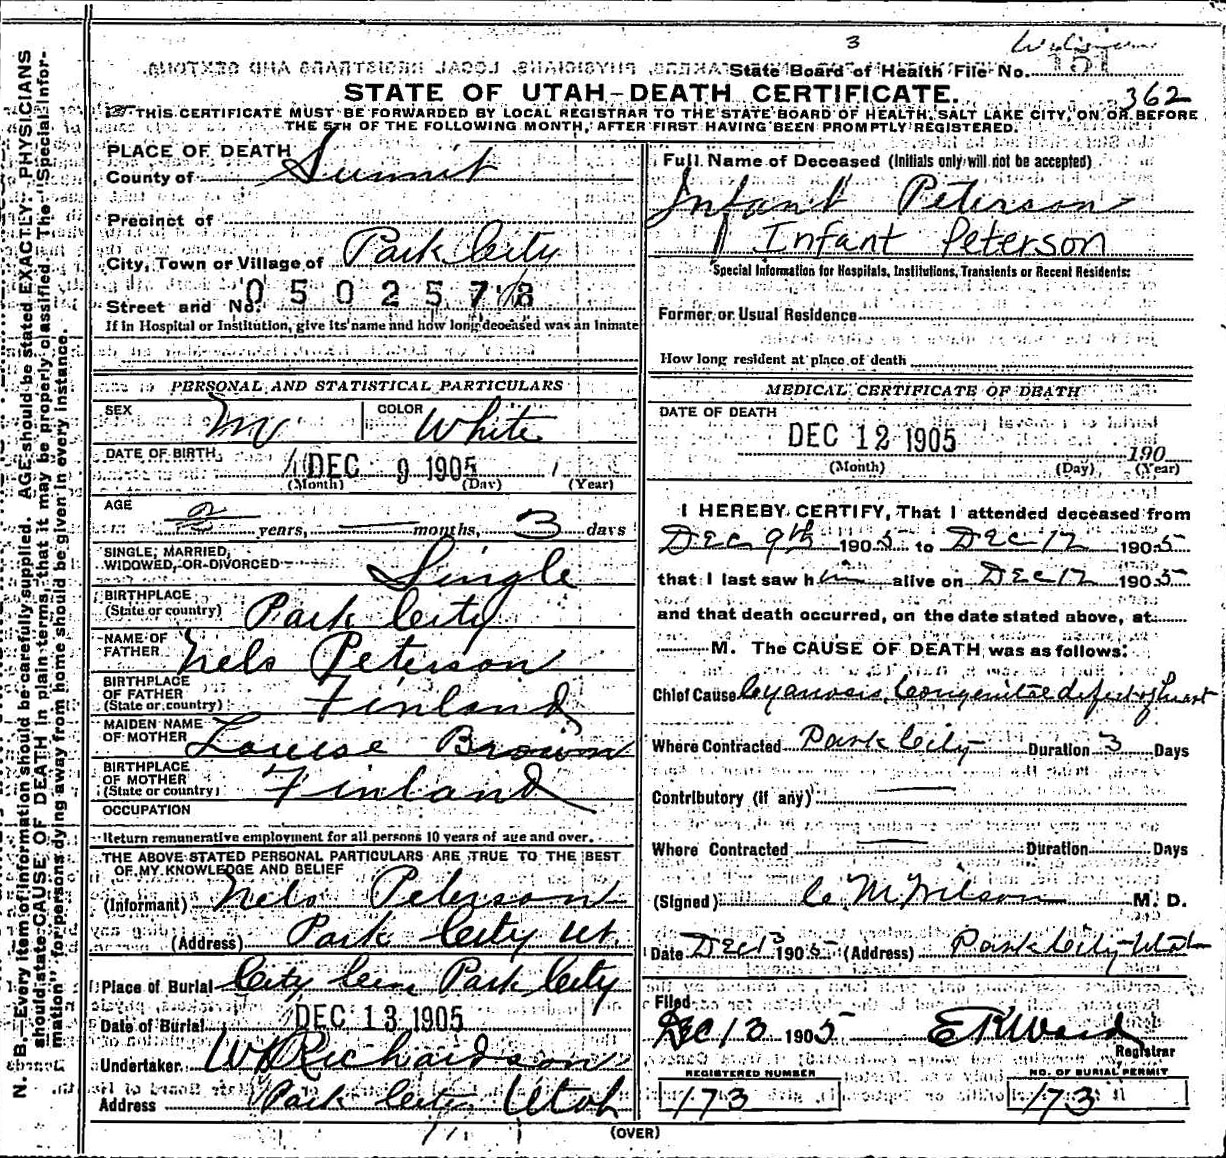 3
State Board of Health File No. 151
362
STATE OF UTAH—DEATH CERTIFICATE.
THIS CERTIFICATE MUST BE FORWARDED BY LOCAL REGISTRAR TO THE STATE BOARD OF HEALTH, SALT LAKE CITY, ON OR BEFORE
THE 5TH OF THE FOLLOWING MONTH, AFTER FIRST HAVING BEEN PROMPTLY REGISTERED.
N. B.—Every item of information should be carefully supplied. AGE should be stated EXACTLY. PHYSICIANS
should state CAUSE OF DEATH in plain terms, that it may be properly classified. The "Special Infor-
mation" for persons dying away from home should be given in every instance.
PLACE OF DEATH
County of Summit
Precinct of
City, Town or Village of Park City
Street and No. 0502578
If in Hospital or Institution, give its name and how long deceased was an inmate
PERSONAL AND STATISTICAL PARTICULARS
SEX M COLOR White
DATE OF BIRTH DEC 9 1905
(Month) (Day) (Year)
AGE
years, months, 3 days
SINGLE, MARRIED,
WIDOWED, OR DIVORCED Single
BIRTHPLACE
(State or country) Park City
NAME OF
FATHER Nels Peterson
BIRTHPLACE
OF FATHER
(State or country) Finland
MAIDEN NAME
OF MOTHER Louise Brown
BIRTHPLACE
OF MOTHER
(State or country) Finland
OCCUPATION
Return remunerative employment for all persons 10 years of age and over.
THE ABOVE STATED PERSONAL PARTICULARS ARE TRUE TO THE BEST
OF MY KNOWLEDGE AND BELIEF
(Informant) Nels Peterson
(Address) Park City Ut.
Place of Burial City Cem Park City
Date of Burial DEC 13 1905
Undertaker W Richardson
Address Park City Utah
Full Name of Deceased (Initials only will not be accepted)
Infant Peterson
Infant Peterson
Special Information for Hospitals, Institutions, Transients or Recent Residents:
Former or Usual Residence
How long resident at place of death
MEDICAL CERTIFICATE OF DEATH
DATE OF DEATH
DEC 12 1905
190
(Month) (Day) (Year)
I HEREBY CERTIFY, That I attended deceased from
Dec 9th 1905 to Dec 12 1905
that I last saw him alive on Dec 12 1905
and that death occurred, on the date stated above, at
M. The CAUSE OF DEATH was as follows:
Chief Cause Cyanosis, Congenital defect of heart
Where Contracted Park City Duration 3 Days
Contributory (if any)
Where Contracted Duration Days
(Signed) C. M. Wilson M. D.
Date Dec 13 1905 (Address) Park City Utah
Filed
Dec 13 1905 E R Ward
Registrar
REGISTERED NUMBER
173
NO. OF BURIAL PERMIT
173
(OVER)